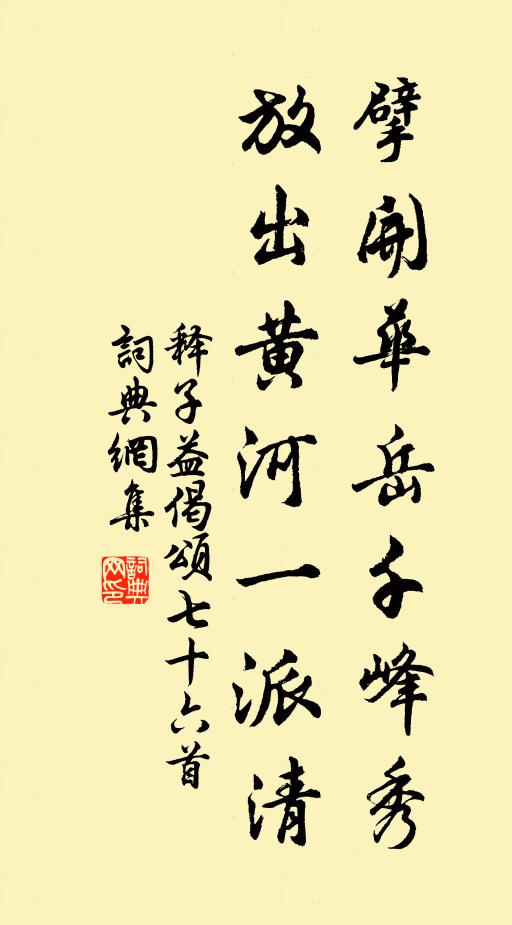 擘開華岳千峰秀
放出黄河一派清
释子益偈頌七十六首
詞典網集
詞典网印